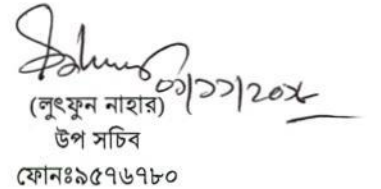 ০১/১১/২০১৮
(লুৎফুন নাহার)
উপ সচিব
ফোনঃ৯৫৭৬৭৮০